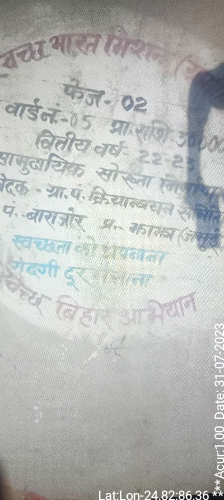 स्वच्छ भारत मिशन (ग्रा
फेज - 02
वार्ड नं.-05 प्रा.राशि 30000
वित्तीय वर्ष 22-23
सामुदायिक सोख्ता निर्माण
वेदक - ग्रा.पं. क्रियान्वयन समिति
पं.- बाराजोर प्र..
स्वच्छता को अपनाना
गंदगी दूर भगाना
स्वच्छ बिहार अभियान
Lat:Lon-24.82:86.36
** Acur1.00 Date: 31-07-2023